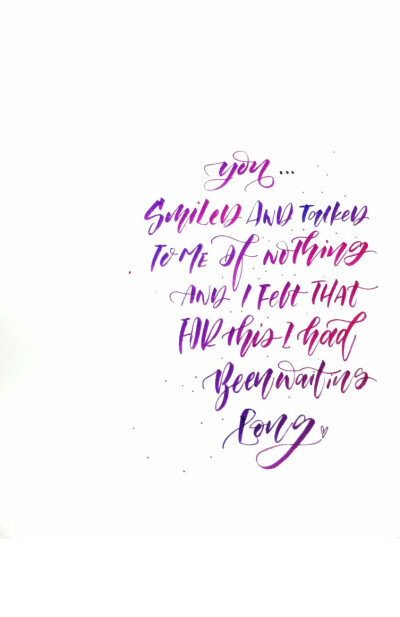 you...
Smiled AND Talked
To ME of nothing
AND I Felt THAT
FOR this I had
Been waiting
Long